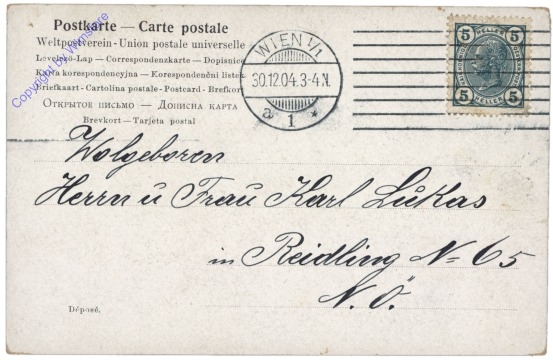 Postkarte — Carte postale
Weltpostverein - Union postale universelle
Levelező-Lap — Correspondenzkarte — Dopisnice
Karta korespondencyjna — Korespondenční lístek
Briefkaart - Cartolina postale - Postcard - Brefkort
Открытое письмо — Дописна карта
Brevkort — Tarjeta postal
WIEN 1/1
30.12.04.3-4.N.
a 1 *
5 HELLER 5
5 HELLER 5
Wolgeboren
Herrn u Frau Karl Lukas
in Reidling No 65
N. Ö.
Déposé.
Copyright by Vienastore